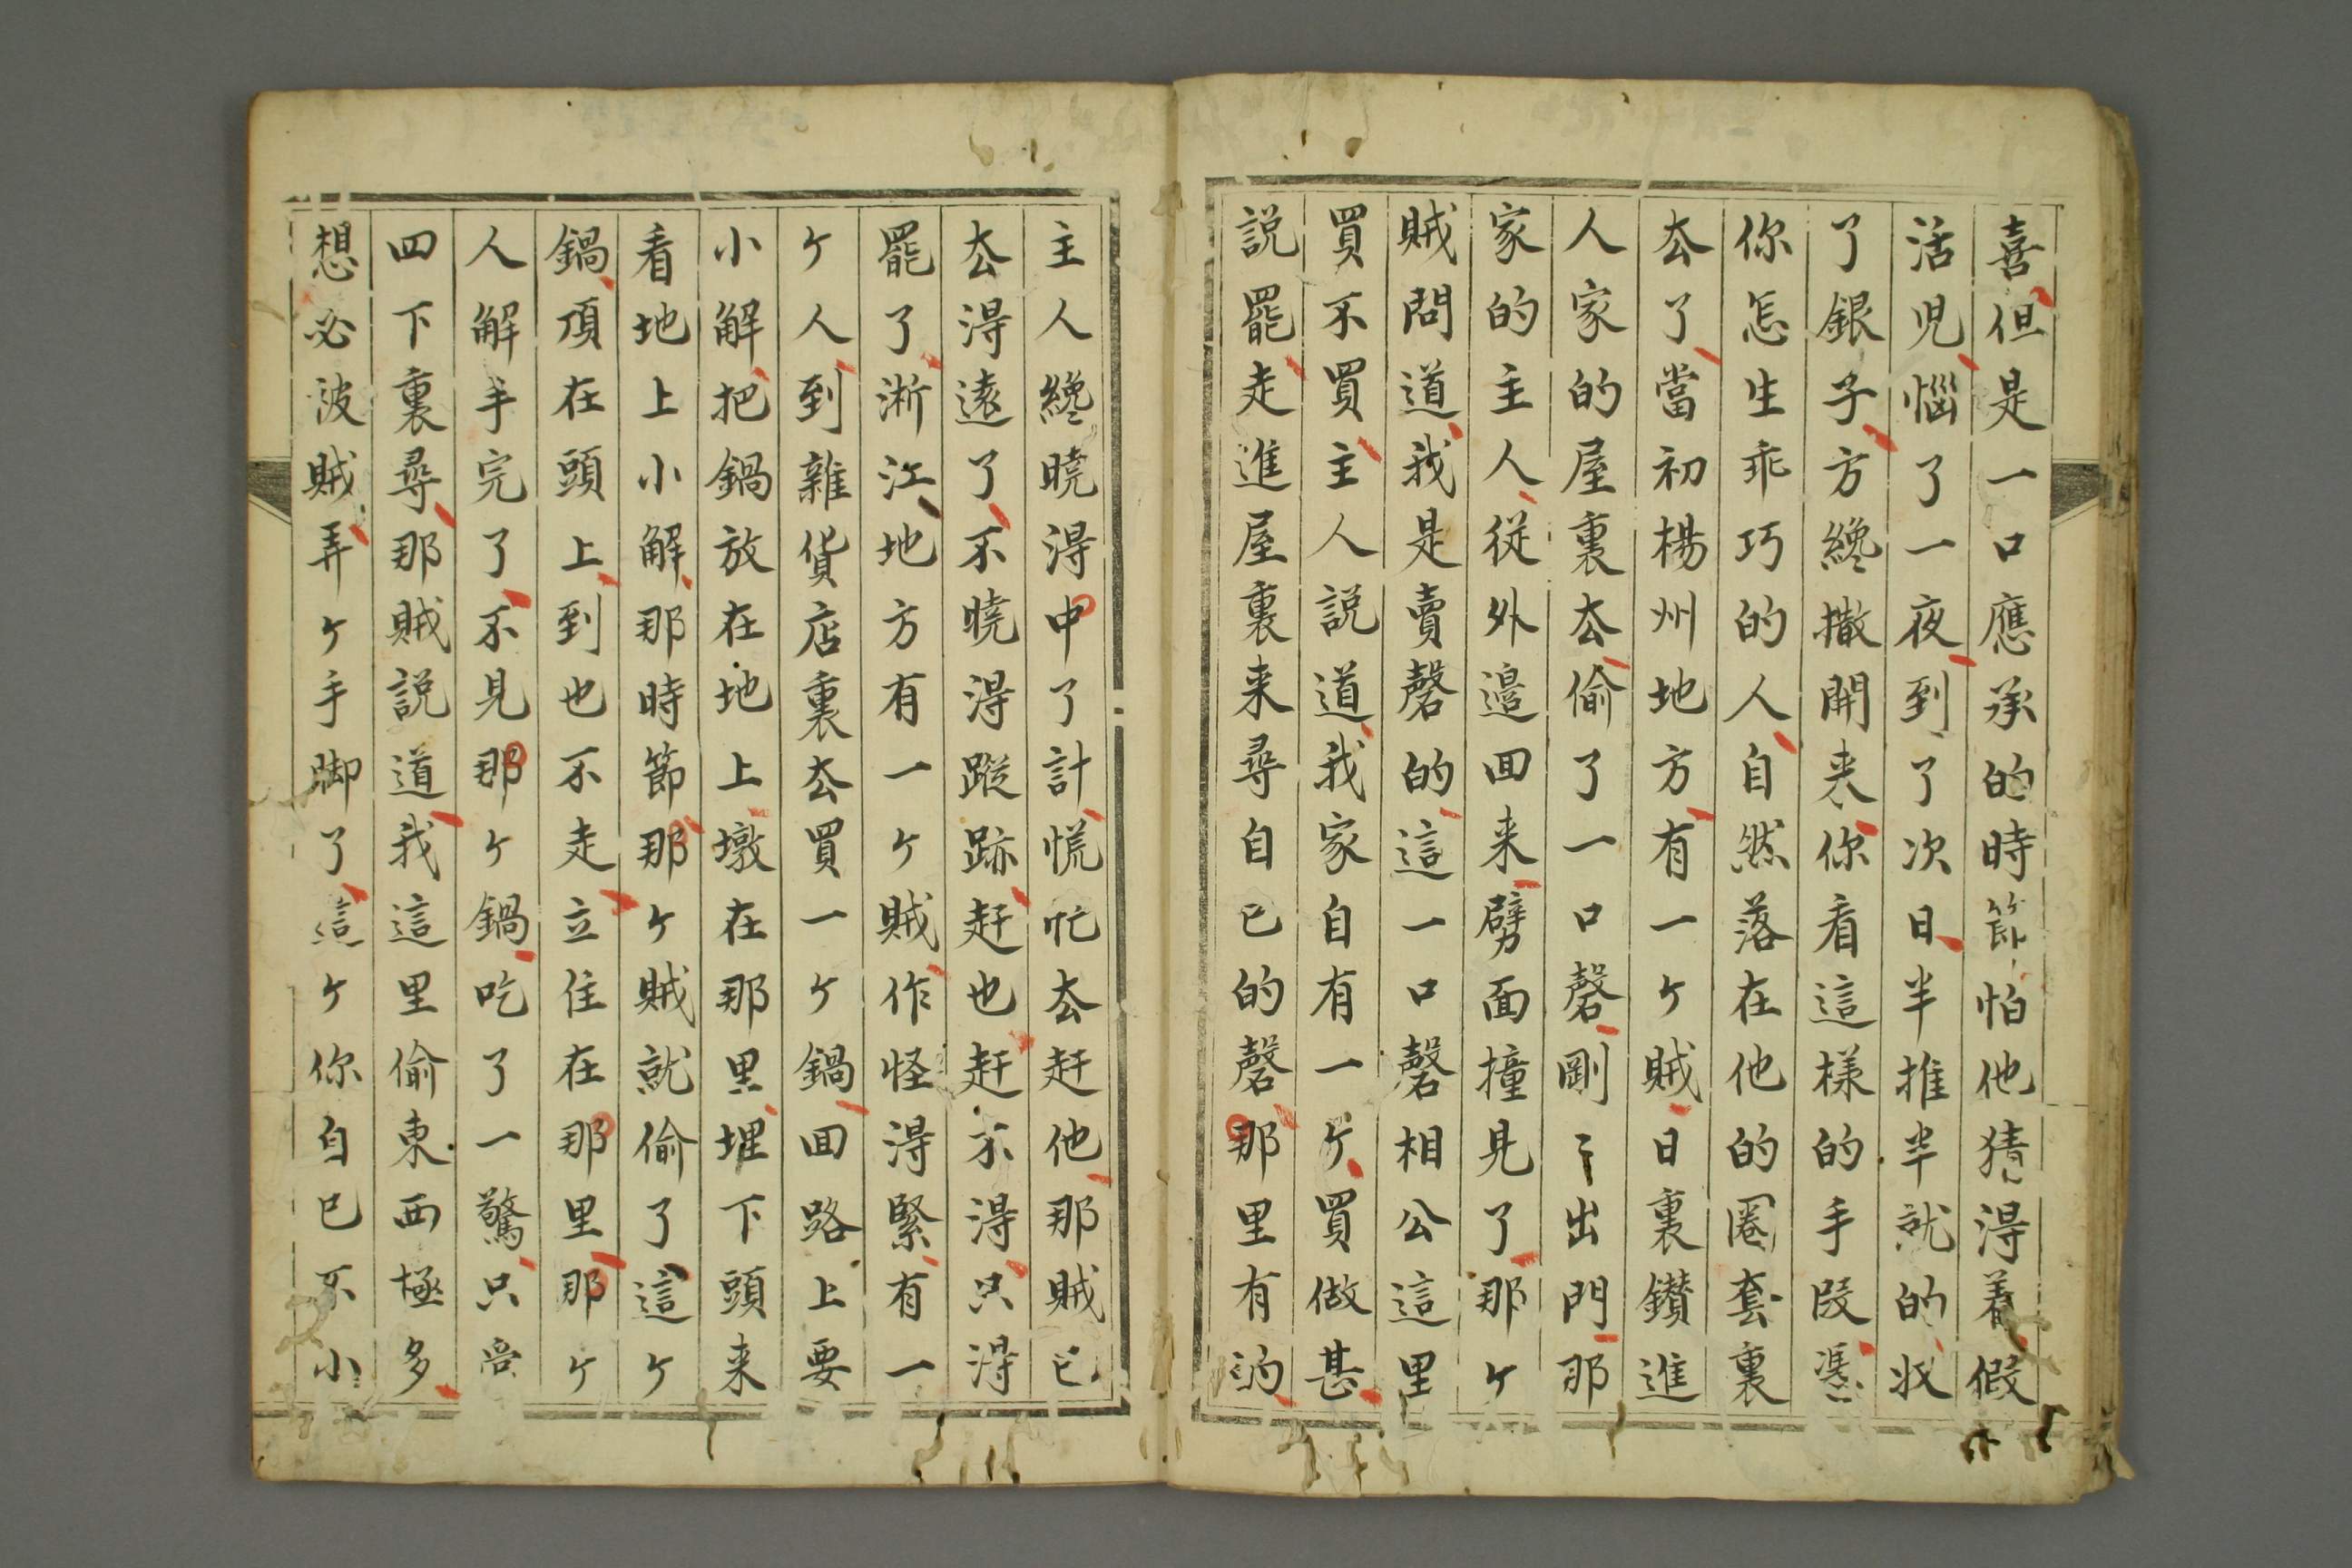 喜但是一口應承的時節怕他猜得着假
活児惱了一夜到了次日半推半就的状
了銀子方纔撒開来你看這樣的手段憑
你怎生乖巧的人自然落在他的圏套裏
厺了當初楊州地方有一ケ賊日裏鑚進
人家的屋裏厺偷了一口磬剛〻出門那
家的主人從外邉回来劈面撞見了那ケ
賊問道我是賣磬的這一口磬相公這里
買不買主人説道我家自有一ケ買做甚
説罷走進屋裏来尋自已的磬那里有的
主人纔曉淂中了計慌忙厺赶他那賊已
厺淂遠了不曉淂蹤跡赶也赶不淂只淂
罷了淅江地方有一ケ賊作怪淂緊有一
ケ人到雜貨店裏厺買一ケ鍋回路上要
小解把鍋放在地上墩在那里埋下頭来
看地上小解那時節那ケ賊就偷了這ケ
鍋頂在頭上到也不走立住在那里那ケ
人解手完了不見那ケ鍋吃了一驚只管
四下裏尋那賊説道我這里偷東西極多
想必波賊弄ケ手脚了這ケ你自已不小